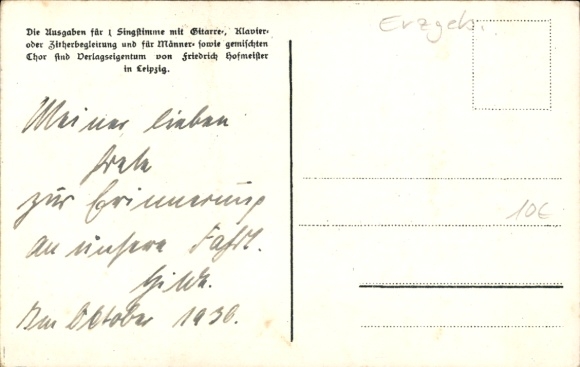 Die Ausgaben für 1 Singstimme mit Gitarre-, Klavier-
oder Zitherbegleitung und für Männer- sowie gemischten
Chor sind Verlagseigentum von Friedrich Hofmeister
in Leipzig.
Erzgeb.
Meiner lieben
zur Erinnerung
an unsere Fahrt.
Hilde.
Im Oktober 1936.
10€